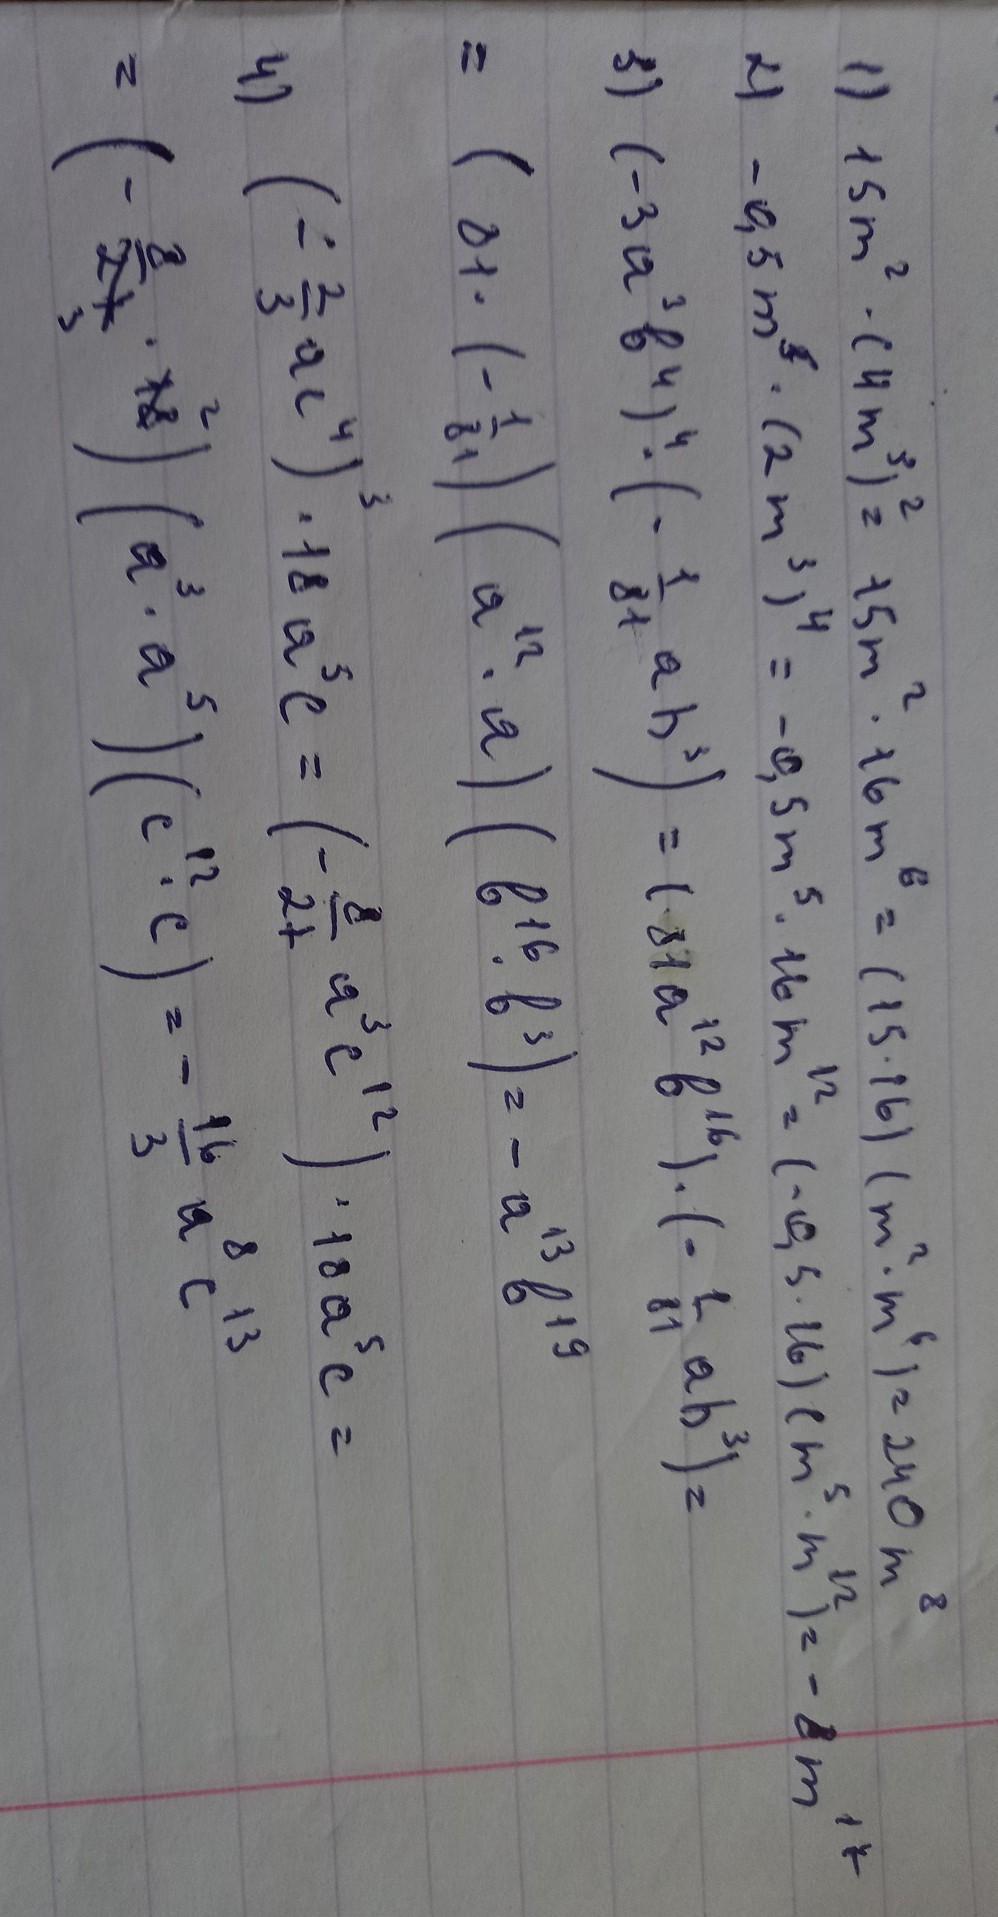 1) 15m² · (4m³)² = 15m² · 16m⁶ = (15·16)(m²·m⁶) = 240m⁸
2) -0,5m⁵ · (2m³)⁴ = -0,5m⁵ · 16m¹² = (-0,5·16)(m⁵·m¹²) = -8m¹⁷
3) (-3a³b⁴)⁴ · (-1/81 ab³) = (81a¹²b¹⁶) · (-1/81 ab³) =
= (81 · (-1/81)) (a¹² · a) (b¹⁶ · b³) = -a¹³b¹⁹
4) (-2/3 ac⁴)³ · 18a⁵c = (-8/27 a³c¹²) · 18a⁵c =
= (-8/27 3 · 18 2) (a³ · a⁵) (c¹² · c) = -16/3 a⁸c¹³